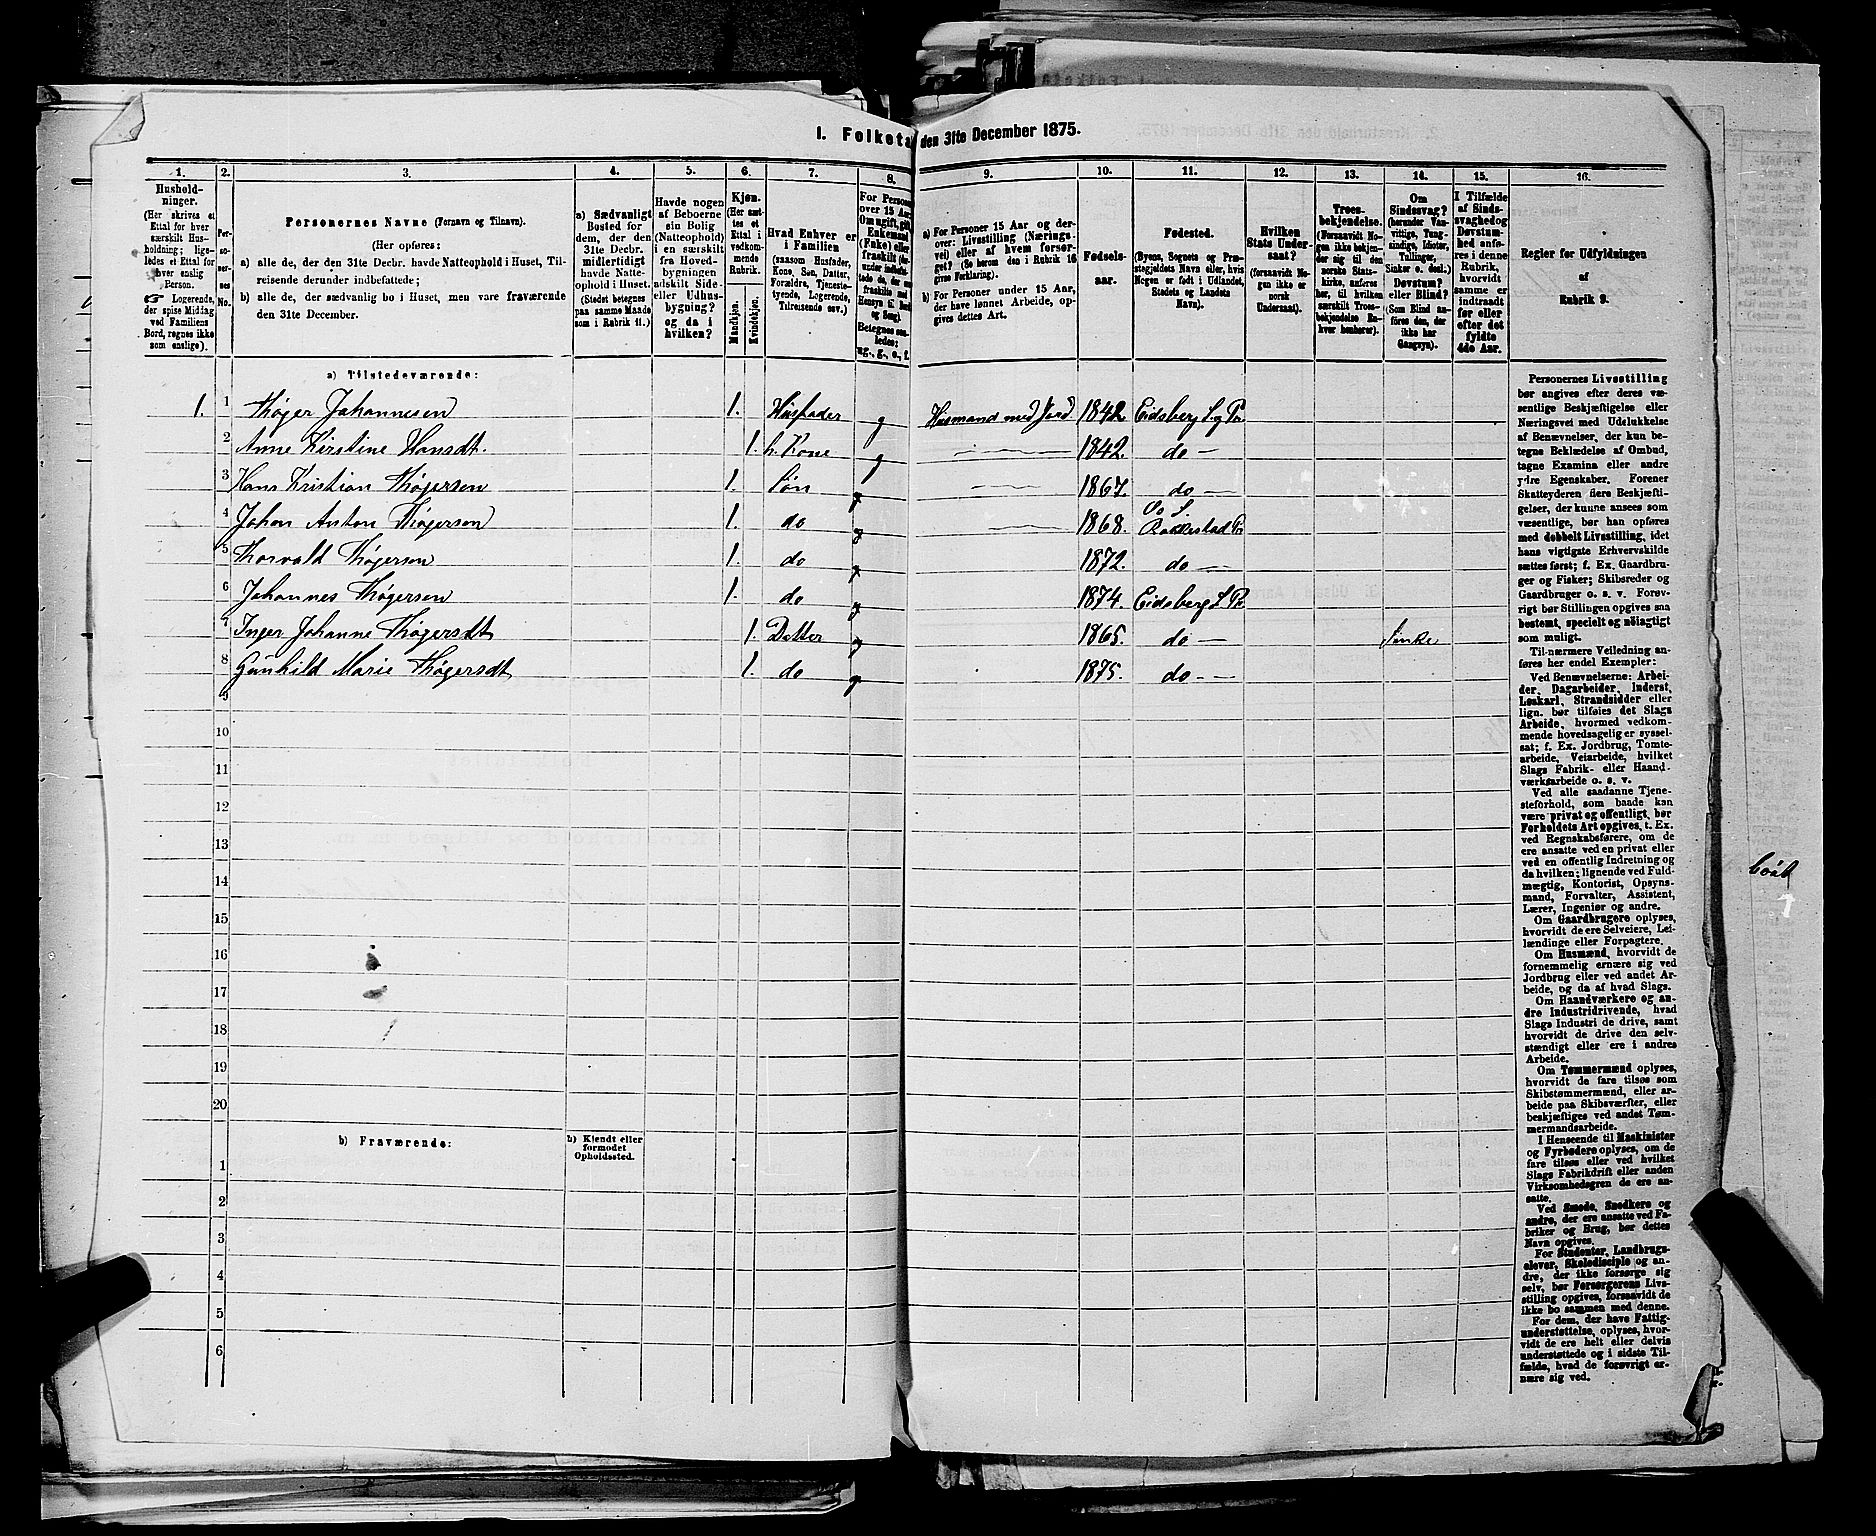 1. Folketæ
den 31te December 1875.
1.
2.
3.
4.
5.
6.
7.
8.
9.
10.
11.
12.
13.
14.
15.
16.
Hushold-
ninger.
(Her skrives et
Ettal for hver
særskilt Hus-
holdning; lige-
ledes et Ettal for
hver enslig
Person.
☞ Logerende,
der spise Middag
ved Familiens
Bord, regnes ikke
som enslige).
Per-
so-
ner-
nes
No.
Personernes Navne (Fornavn og Tilnavn).
(Her opføres:
a) alle de, der den 31te Decbr. havde Natteophold i Huset, Til-
reisende derunder indbefattede;
b) alle de, der sædvanlig bo i Huset, men vare fraværende
den 31te December.
a) Sædvanligt
Bosted for
dem, der den
31te Decbr.
midlertidigt
havde Natte-
ophold i Huset.
(Stedet betegnes
paa samme Maade
som i Rubrik 11.)
Havde nogen
af Beboerne
sin Bolig
(Natteophold)
i en særskilt
fra Hoved-
bygningen
adskilt Side-
eller Udhus-
bygning?
og da i
hvilken?
Kjøn.
(Her sæt-
tes et
Ettal i
vedkom-
mende
Rubrik.
Mandkjøn.
Kvindekjøn.
Hvad Enhver er
i Familien
(saasom Husfader,
Kone, Søn, Datter,
Forældre, Tjeneste-
tyende, Logerende,
Tilreisende osv.)
For Personer
over 15 Aar:
Om ugift, gift,
Enkemand
(Enke) eller
fraskilt
Betegnes saa-
ledes:
ug., g., e., f.
a) For Personer 15 Aar og der-
over: Livsstilling (Nærings-
vei) eller af hvem forsør-
get? (Se herom den i Rubrik 16
givne Forklaring).
b) For Personer under 15 Aar,
der have lønnet Arbeide, op-
gives dettes Art.
Fødsels-
aar.
Fødested.
(Byens, Sognets og Præ-
stegjældets Navn eller, hvis
Nogen er født i Udlandet,
Stedets og Landets
Navn).
Hvilken
Stats Under-
saat?
(forsaavidt No-
gen ikke er
norsk
Undersaat).
Troes-
bekjendelse.
(Forsaavidt No-
gen ikke bekjen-
der sig til den
norske Stats-
kirke, anføres
her, til hvilken
særskilt Troes-
bekjendelse En-
hver henhører).
Om
Sindssvag?
(herunder Van-
vittige, Tung-
sindige, Idioter,
Tullinger,
Sinker o. desl.)
Døvstum?
eller Blind?
(Som Blind an-
føres den, der
ikke har
Gangsyn).
I Tilfælde
af Sinds-
svaghed og
Døvstum-
hed anfø-
res i denne
Rubrik,
hvorvidt
samme er
indtraadt
før eller
efter det
fyldte
4de Aar.
Regler for Udfyldningen
af
Rubrik 9.
a) Tilstedeværende:
1. 1 Thøger Johannesen 1. Husfader g Husmand med Jord 1842 Eidsberg S. og Pr.
2 Anne Kirstine Hansdt. 1. h. Kone g 1842. do —
3 Hans Kristian Thøgersen 1. Søn 1867. do —
4 Johan Anton Thøgersen 1. do 1868. Rakkestad Pr.
5 Thorvald Thøgersen 1. do 1872. do —
6 Johannes Thøgersen 1. do 1874. Eidsberg S. Pr.
7 Inger Johanne Thøgersdt 1. Datter 1865. do — Sinke
8 Gunhild Marie Thøgersdt 1. do 1875. do —
9
10
11
12
13
14
15
16
17
18
19
20
b) Fraværende:
b) Kjendt eller
formodet
Opholdssted.
1
2
3
4
5
6
Personernes Livsstilling
bør angives efter deres væ-
sentlige Beskjæftigelse eller
Næringsvei med Udelukkelse
af Benævnelser, der kun be-
tegne Beklædelse af Ombud,
tagne Examina eller andre
ydre Egenskaber. Forener
Skatteyderen flere Beskjæfti-
gelser, der kunne ansees som
væsentlige, bør han opføres
med dobbelt Livsstilling, idet
hans vigtigste Erhvervskilde
sættes først; f. Ex. Gaardbru-
ger og Fisker; Skibsreder og
Gaardbruger o. s. v. Forøv-
rigt bør Stillingen opgives saa
bestemt, specielt og nøiagtigt
som muligt.
Til nærmere Veiledning an-
føres her endel Exempler:
Ved Benævnelserne: Arbei-
der, Dagarbeider, Inderst,
Løskarl, Strandsidder eller
lign. bør tilføies det Slags
Arbeide, hvormed vedkom-
mende hovedsagelig er syssel-
sat; f. Ex. Jordbrug, Tomte-
arbeide, Veiarbeide, hvilket
Slags Fabrik- eller Haand-
værksarbeide o. s. v.
Ved alle saadanne Tjene-
steforhold, som baade kan
være privat og offentligt, bør
Forholdets Art opgives, t. Ex.
ved Regnskabsførere, om de
ere ansatte ved en privat eller
ved en offentlig Indretning og
da hvilken; lignende ved Fuld-
mægtig, Kontorist, Opsyns-
mand, Forvalter, Assistent,
Lærer, Ingeniør og andre.
Om Gaardbrugere oplyses,
hvorvidt de ere Selveiere, Lei-
lændinge eller Forpagtere.
Om Husmænd, hvorvidt de
fornemmelig ernære sig ved
Jordbrug eller ved andet Ar-
beide, og da af hvad Slags.
Om Haandværkere og an-
dre Industridrivende, hvad
Slags Industri de drive, samt
hvorvidt de drive den selv-
stændigt eller ere i andres
Arbeide.
Om Tømmermænd oplyses,
hvorvidt de fare tilsøs som
Skibstømmermænd, eller ar-
beide paa Skibsværfter, eller
beskjæftiges ved andet Tøm-
mermandsarbeide.
I Henseende til Maskinister
og Fyrbødere oplyses, om de
fare tilsøs eller ved hvilket
Slags Fabrikdrift eller anden
Virksomhedsgren de ere an-
satte.
Ved Smede, Snedkere og
andre, der ere ansatte ved Fa-
briker og Brug, bør dettes
Navn opgives.
For Studenter, Landbrugs-
elever, Skoledisciple og an-
dre, der ikke forsørge sig
selv, bør Forsørgerens Livs-
stilling opgives, forsaavidt de
ikke bo sammen med denne.
For dem, der have Fattig-
understøttelse, oplyses, hvor-
vidt de ere helt eller delvis
understøttede og i sidste Til-
fælde, hvad de forøvrigt er-
nære sig ved.